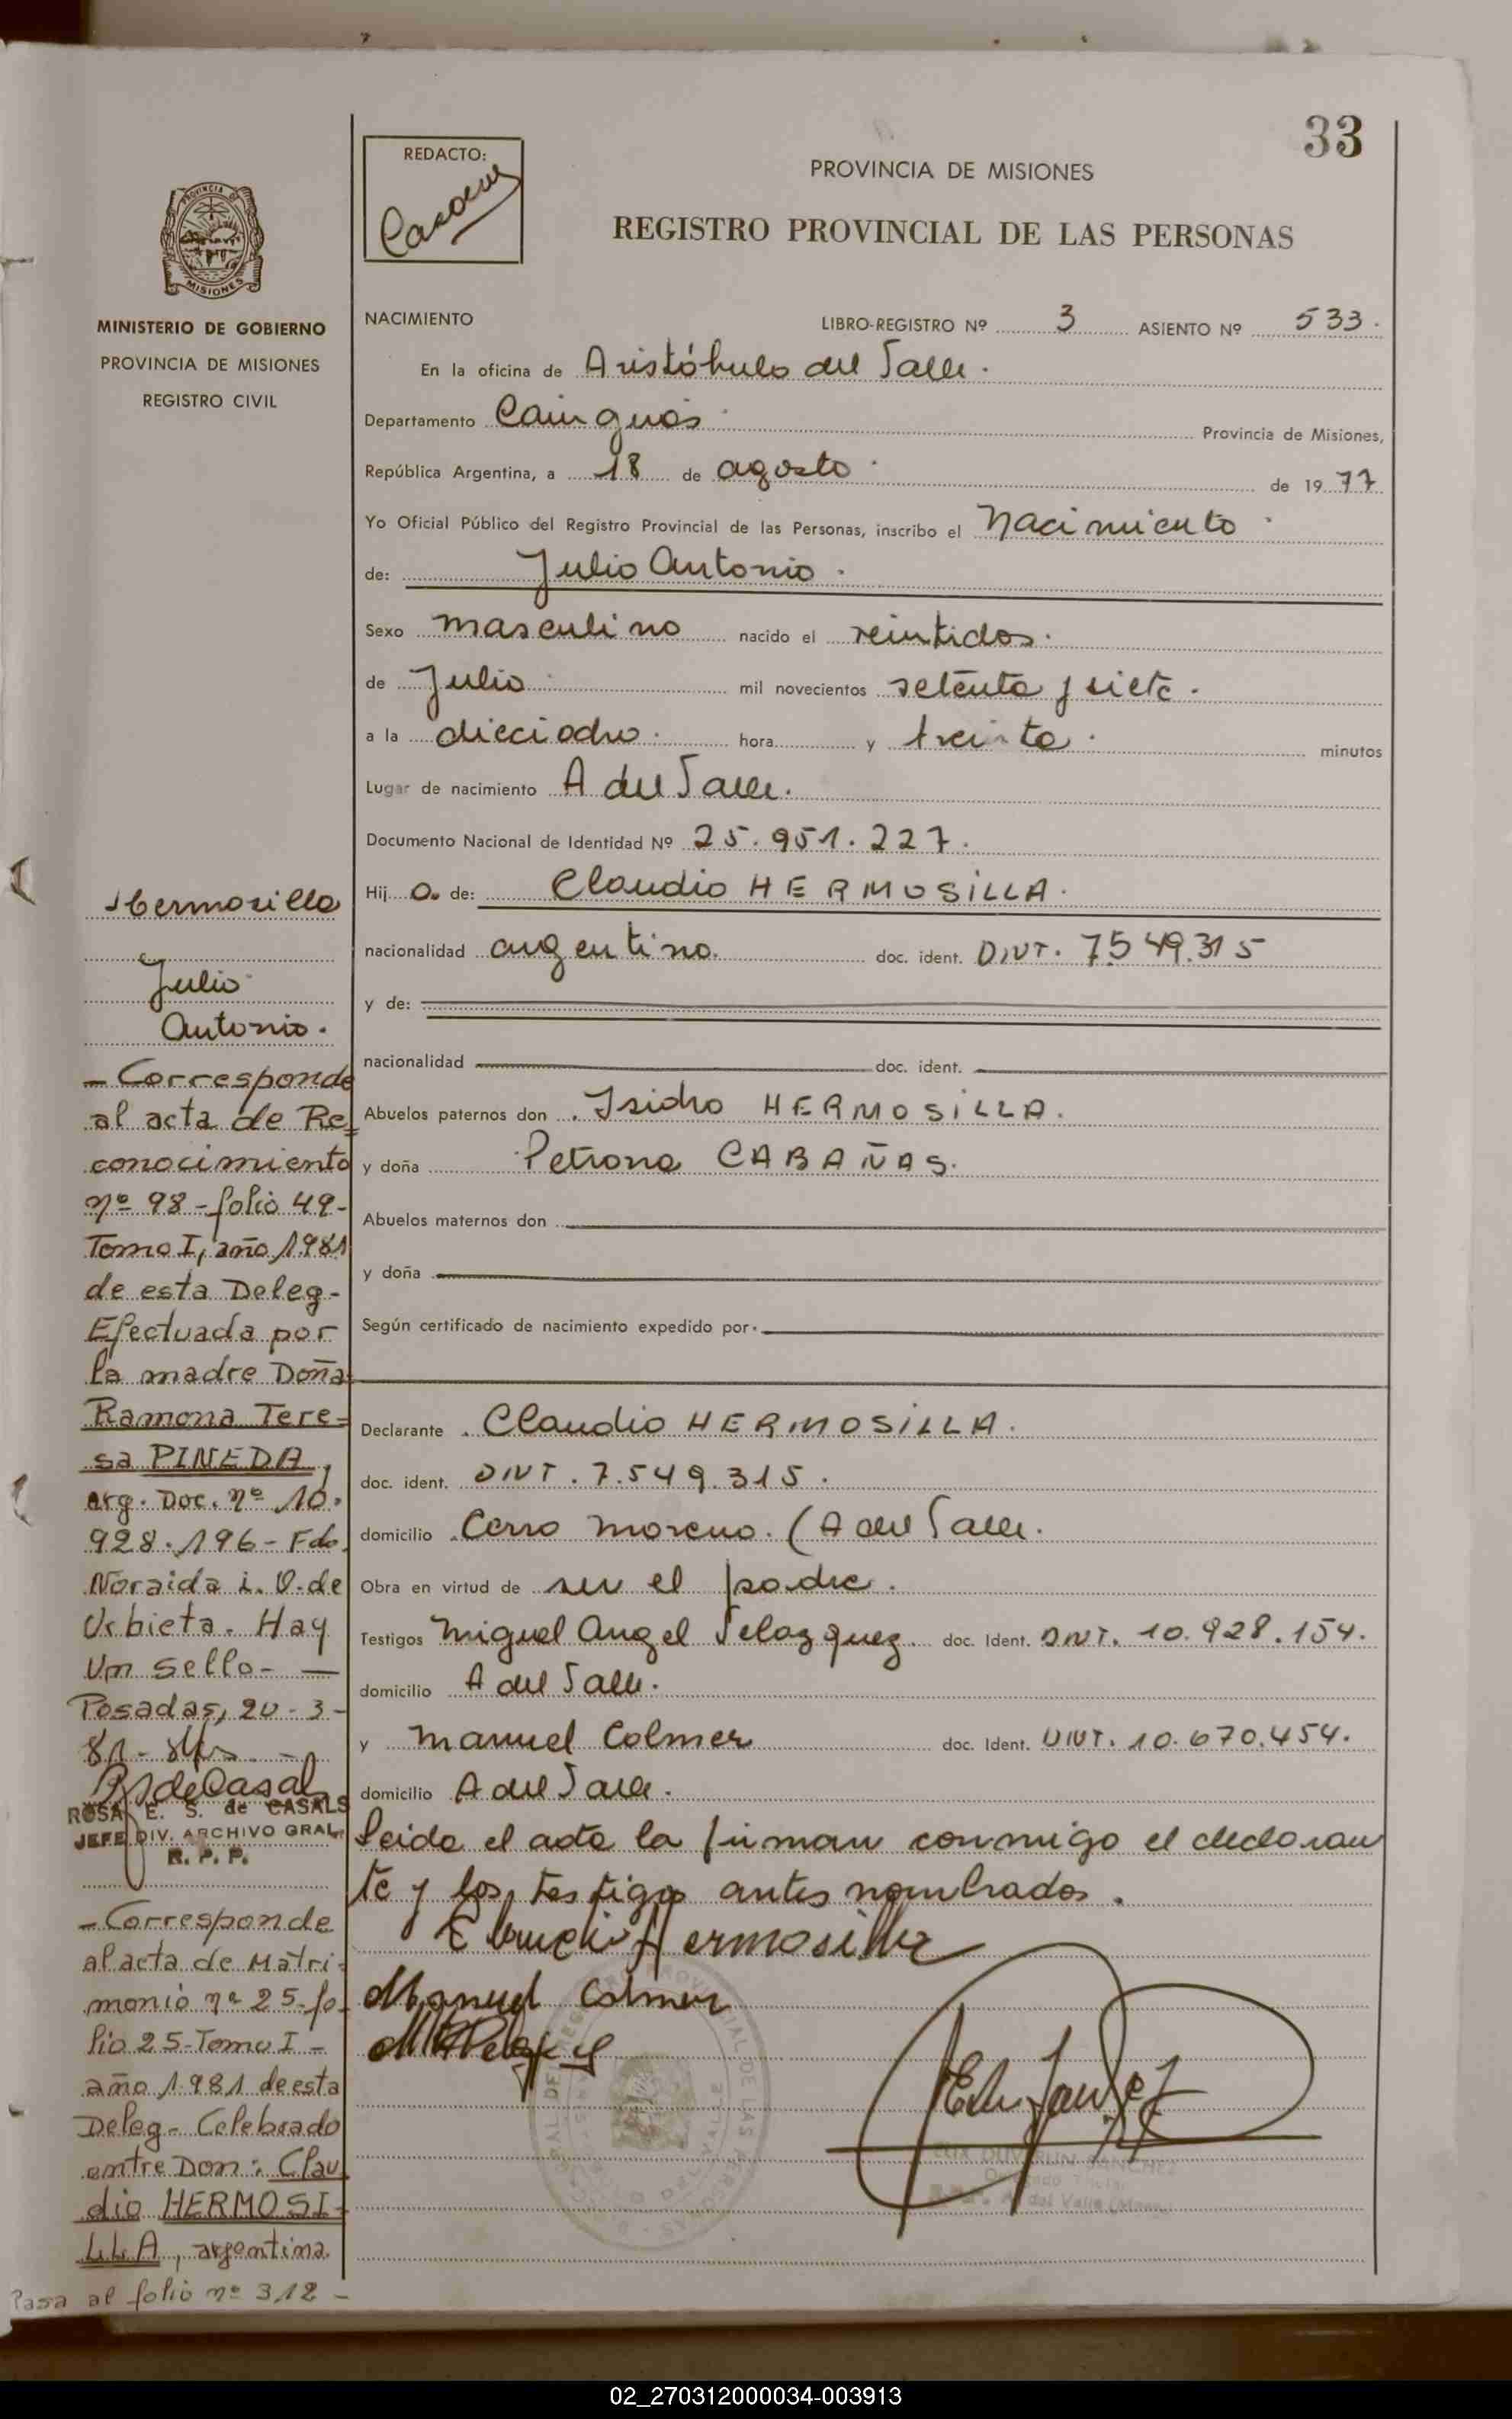 33
REDACTO:
PROVINCIA DE MISIONES
REGISTRO PROVINCIAL DE LAS PERSONAS
PROVINCIA DE
MISIONES
MINISTERIO DE GOBIERNO
PROVINCIA DE MISIONES
REGISTRO CIVIL
NACIMIENTO LIBRO-REGISTRO Nº 3 ASIENTO Nº 533.
En la oficina de Aristóbulo del Valle.
Departamento Cainguás Provincia de Misiones,
República Argentina, a 18 de agosto de 1977
Yo Oficial Público del Registro Provincial de las Personas, inscribo el Nacimiento
de: Julio Antonio.
Sexo masculino nacido el veintidos.
de Julio mil novecientos setenta y siete.
a la dieciocho. hora y treinta. minutos
Lugar de nacimiento A del Valle.
Documento Nacional de Identidad Nº 25.951.227.
Hij o. de: Claudio HERMOSILLA.
nacionalidad argentino. doc. ident. DNT. 7.549.315
y de:
nacionalidad doc. ident.
Abuelos paternos don Isidro HERMOSILLA.
y doña Petrona CABAÑAS.
Abuelos maternos don
y doña
Según certificado de nacimiento expedido por
Declarante Claudio HERMOSILLA.
doc. ident. DNT. 7.549.315.
domicilio Cerro Moreno. (A del Valle.
Obra en virtud de ser el padre.
Testigos Miguel Angel Velazquez doc. Ident. DNT. 10.928.154.
domicilio A del Valle.
y Manuel Colmer doc. Ident. DNT. 10.670.454.
domicilio A del Valle.
Leida el acta la firman conmigo el declaran
te y los testigos antes nombrados.
Claudio Hermosilla
Manuel Colmer
Hermosilla
Julio
Antonio.
- Corresponde
al acta de Re=
conocimiento
nº 98 - folio 49-
Tomo I, año 1981
de esta Deleg-
Efectuada por
la madre Doña
Ramona Tere=
sa PINEDA,
arg. Doc. nº 10.
928.196- Fdo.
Noraida i. V. de
Urbieta. Hay
un sello-
Posadas, 20-3-
81-
ROSA E. S. de CASALS
JEFE DIV. ARCHIVO GRAL.
R. P. P.
- Corresponde
al acta de Matri=
monio nº 25-fo
lio 25-Tomo I -
año 1981 de esta
Deleg- Celebrado
entre Don: Clau
dio HERMOSI-
LLA, argentina.
Pasa al folio nº 312 -
02_270312000034-003913